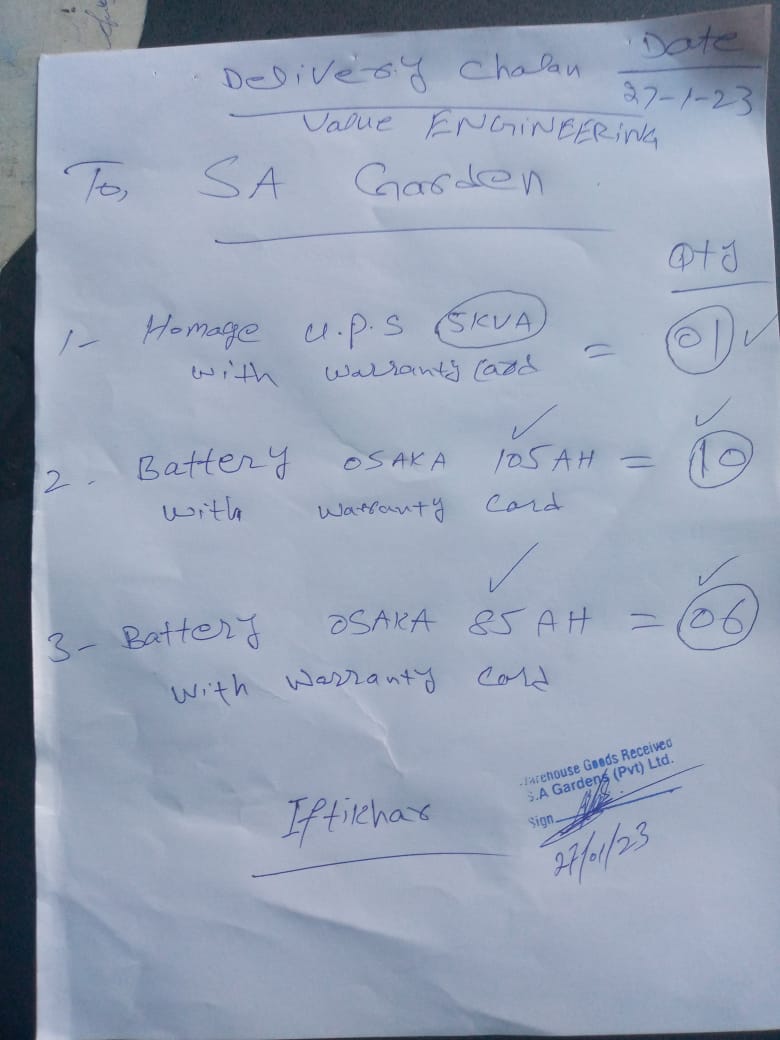 Delivery Chalan Date
27-1-23
Value ENGINEERING
To, SA Garden
Qty
1- Homage u.p.s 5KVA = 01
with warranty Card
2. Battery OSAKA 105 AH = 10
with warranty Card
3- Battery OSAKA 85 AH = 06
with warranty Card
Warehouse Goods Received
S.A Gardens (Pvt) Ltd.
Iftikhar
Sign
27/01/23